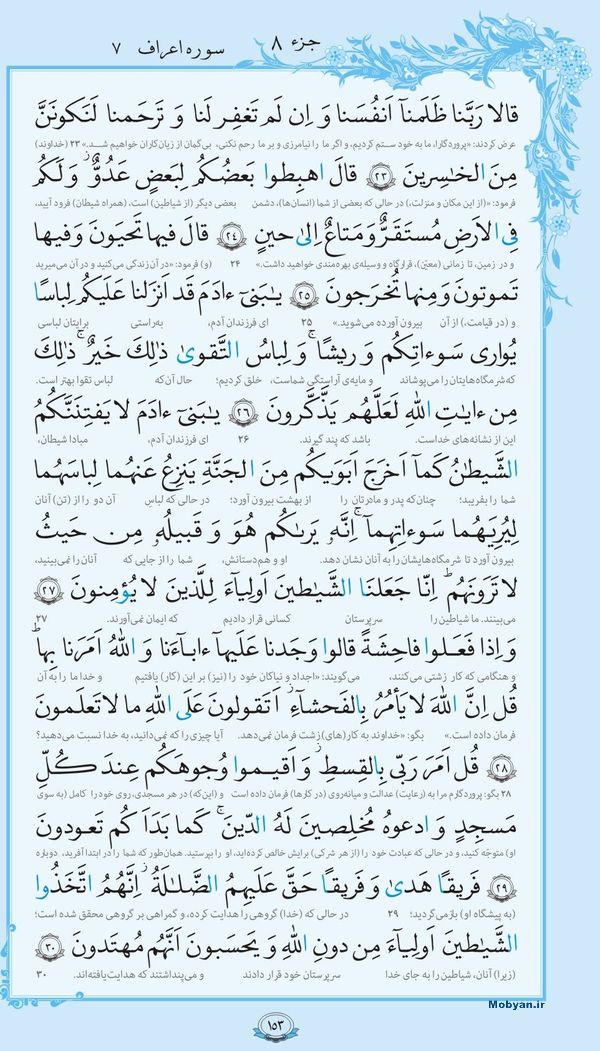 جزء ۸ سوره اعراف ۷
قالا رَبَّنا ظَلَمنآ اَنفُسَنا وَ اِن لَم تَغفِر لَنا وَ تَرحَمنا لَنَكونَنَّ
عرض کردند: «پروردگارا، ما به خود ستم کردیم، و اگر ما را نیامرزی و بر ما رحم نکنی، بی‌گمان از زیان‌کاران خواهیم شد.» ۲۳ (خداوند)
مِنَ الخاسِرينَ ۲۳ قالَ اهبِطوا بَعضُكُم لِبَعضٍ عَدُوٌّ وَ لَكُم
فرمود: «(از این مکان و منزلت)، در حالی که بعضی از شما (انسان‌ها)، دشمن بعضی دیگر (از شیاطین) است، (همراه شیطان) فرود آیید،
فِى الاَرضِ مُستَقَرٌّ وَ مَتاعٌ اِلىٰ حينٍ ۲۴ قالَ فيها تَحيَونَ وَ فيها
و در زمین، تا زمانی (معیّن)، قرارگاه و وسیله‌ی بهره‌مندی خواهید داشت.» ۲۴ (و) فرمود: «در آن زندگی می‌کنید و در آن می‌میرید
تَموتونَ وَ مِنها تُخرَجونَ ۲۵ يٰبَنىٓ ءادَمَ قَد اَنزَلنا عَلَيكُم لِباسًا
و (در قیامت)، از آن بیرون آورده می‌شوید.» ۲۵ ای فرزندان آدم، به‌راستی برایتان لباسی
يُوارى سَوءاتِكُم وَ ريشًا ۚ وَ لِباسُ التَّقوىٰ ذٰلِكَ خَيرٌ ۚ ذٰلِكَ
که شرمگاه‌هایتان را می‌پوشاند و مایه‌ی آراستگی شماست، خلق کردیم؛ حال آن‌که لباس تقوا بهتر است.
مِن ءايٰتِ اللهِ لَعَلَّهُم يَذَّكَّرونَ ۲۶ يٰبَنىٓ ءادَمَ لا يَفتِنَنَّكُمُ
این از نشانه‌های خداست. باشد که پند گیرند. ۲۶ ای فرزندان آدم، مبادا شیطان،
الشَّيطٰنُ كَمآ اَخرَجَ اَبَوَيكُم مِنَ الجَنَّةِ يَنزِعُ عَنهُما لِباسَهُما
شما را بفریبد؛ چنان‌که پدر و مادرتان را از بهشت بیرون آورد؛ در حالی که لباسِ آن دو را از (تن) آنان
لِيُرِيَهُما سَوءاتِهِمآ ۚ اِنَّهُۥ يَرىٰكُم هُوَ وَ قَبيلُهُۥ مِن حَيثُ
بیرون آورد تا شرمگاه‌هایشان را به آنان نشان دهد. او و هم‌دستانش، شما را از جایی که آنان را نمی‌بینید،
لا تَرَونَهُم ۗ اِنّا جَعَلنَا الشَّيٰطينَ اَولِيآءَ لِلَّذينَ لا يُؤمِنونَ ۲۷
می‌بینند. ما شیاطین را سرپرستان کسانی قرار دادیم که ایمان نمی‌آورند. ۲۷
وَ اِذا فَعَلوا فاحِشَةً قالوا وَجَدنا عَلَيهآ ءابآءَنا وَ اللهُ اَمَرَنا بِها ۗ
و هنگامی که کار زشتی می‌کنند، می‌گویند: «اجداد و نیاکان خود را (نیز) بر این (کار) یافتیم و خدا ما را به آن
قُل اِنَّ اللهَ لا يَأمُرُ بِالفَحشآءِ ۖ اَتَقولونَ عَلَى اللهِ ما لا تَعلَمونَ
فرمان داده است.» بگو: «خداوند به کار(های) زشت فرمان نمی‌دهد. آیا چیزی را که نمی‌دانید، به خدا نسبت می‌دهید؟
۲۸ قُل اَمَرَ رَبّى بِالقِسطِ ۖ وَ اَقيموا وُجوهَكُم عِندَ كُلِّ
۲۸ بگو: پروردگارم مرا به (رعایت) عدالت و میانه‌روی (در کارها) فرمان داده است و (این‌که) در هر مسجدی، روی خود را کامل (به سوی
مَسجِدٍ وَ ادعوهُ مُخلِصينَ لَهُ الدّينَ ۚ كَما بَدَاَكُم تَعودونَ
او) متوجّه کنید، و در حالی که عبادت خود را (از هر شرکی) برایش خالص کرده‌اید، او را بپرستید. همان‌طور که شما را در ابتدا آفرید، دوباره
۲۹ فَريقًا هَدىٰ وَ فَريقًا حَقَّ عَلَيهِمُ الضَّلٰلَةُ ۗ اِنَّهُمُ اتَّخَذُوا
(به پیشگاه او) بازمی‌گردید؛ ۲۹ در حالی که (خدا) گروهی را هدایت کرده، و گمراهی بر گروهی محقق شده است؛
الشَّيٰطينَ اَولِيآءَ مِن دونِ اللهِ وَ يَحسَبونَ اَنَّهُم مُهتَدونَ ۳۰
(زیرا) آنان، شیاطین را به جای خدا سرپرستان خود قرار دادند و می‌پنداشتند که هدایت‌یافته‌اند. ۳۰
۱۵۳
Mobyan.ir